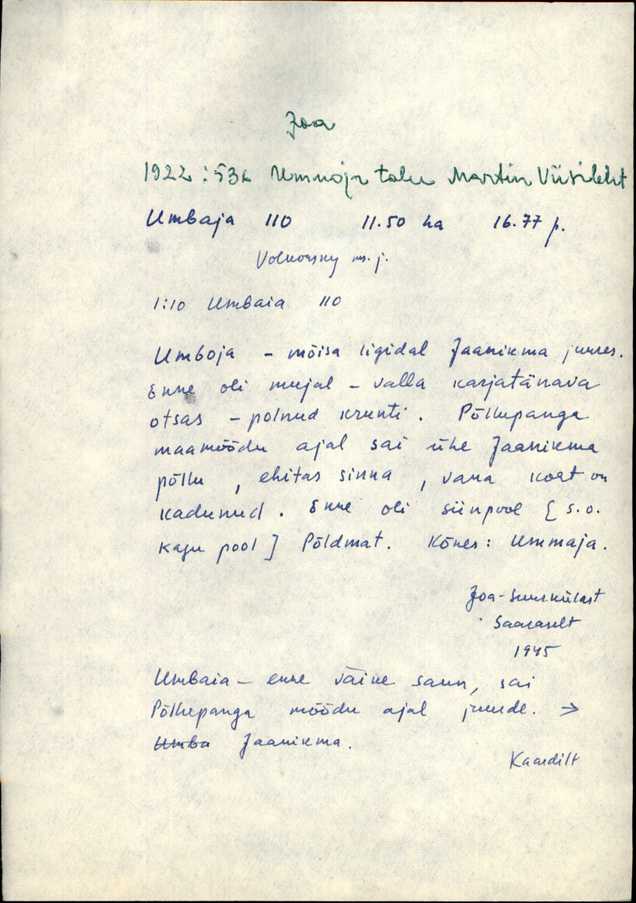 Joa
1922: 532 Ummoja talu Martin Viisileht
Umbaja 110 11.50 ha 16.77 p.
m. j.
1:10 Umbaia 110
Umboja – mõisa ligidal Jaanikma juures.
Enne oli mujal – valla karjatänava
otsas – polnud krunti. Põllupanga
maamõõdu ajal sai ühe Jaanikma
põllu, ehitas sinna, vana koht on
kadunud. Enne oli siinpool [s.o.
kagu pool] Põldmat. Kõnes: Ummaja.
Joa-Suurkülast
Saaraselt
1945
Umbaia – enne väike saun, sai
Põllupanga mõõdu ajal juurde. →
Umba Jaanikma.
Kaardilt